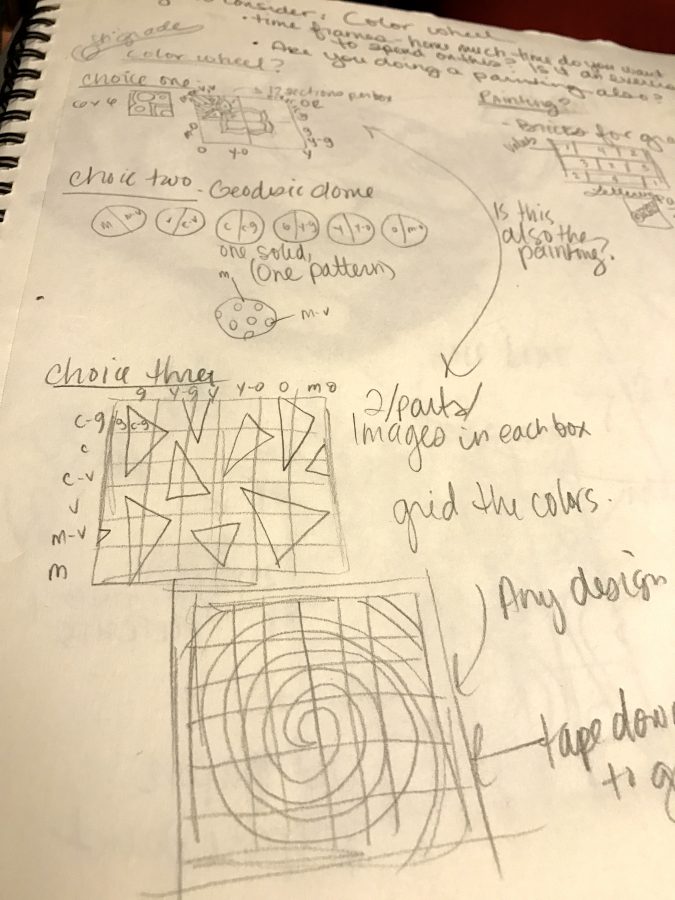 consider: Color wheel
• time frames - how much time do you want
to spend on this? Is it an
• Are you doing a painting also?
color wheel?
Choice one
12 sections per box
m-o
O
y-o
y
y-g
g
Painting?
- Bricks for
Choic two - Geodesic dome
c c-g
y y-o
o m-o
one solid,
(One pattern)
m
m-v
Is this
also the
painting?
Choice three
g y-g y y-o O m-o
c-g
g c-g
c
c-v
v
m-v
m
2/parts/
Images in each box
grid the colors.
Any design
tape down
to